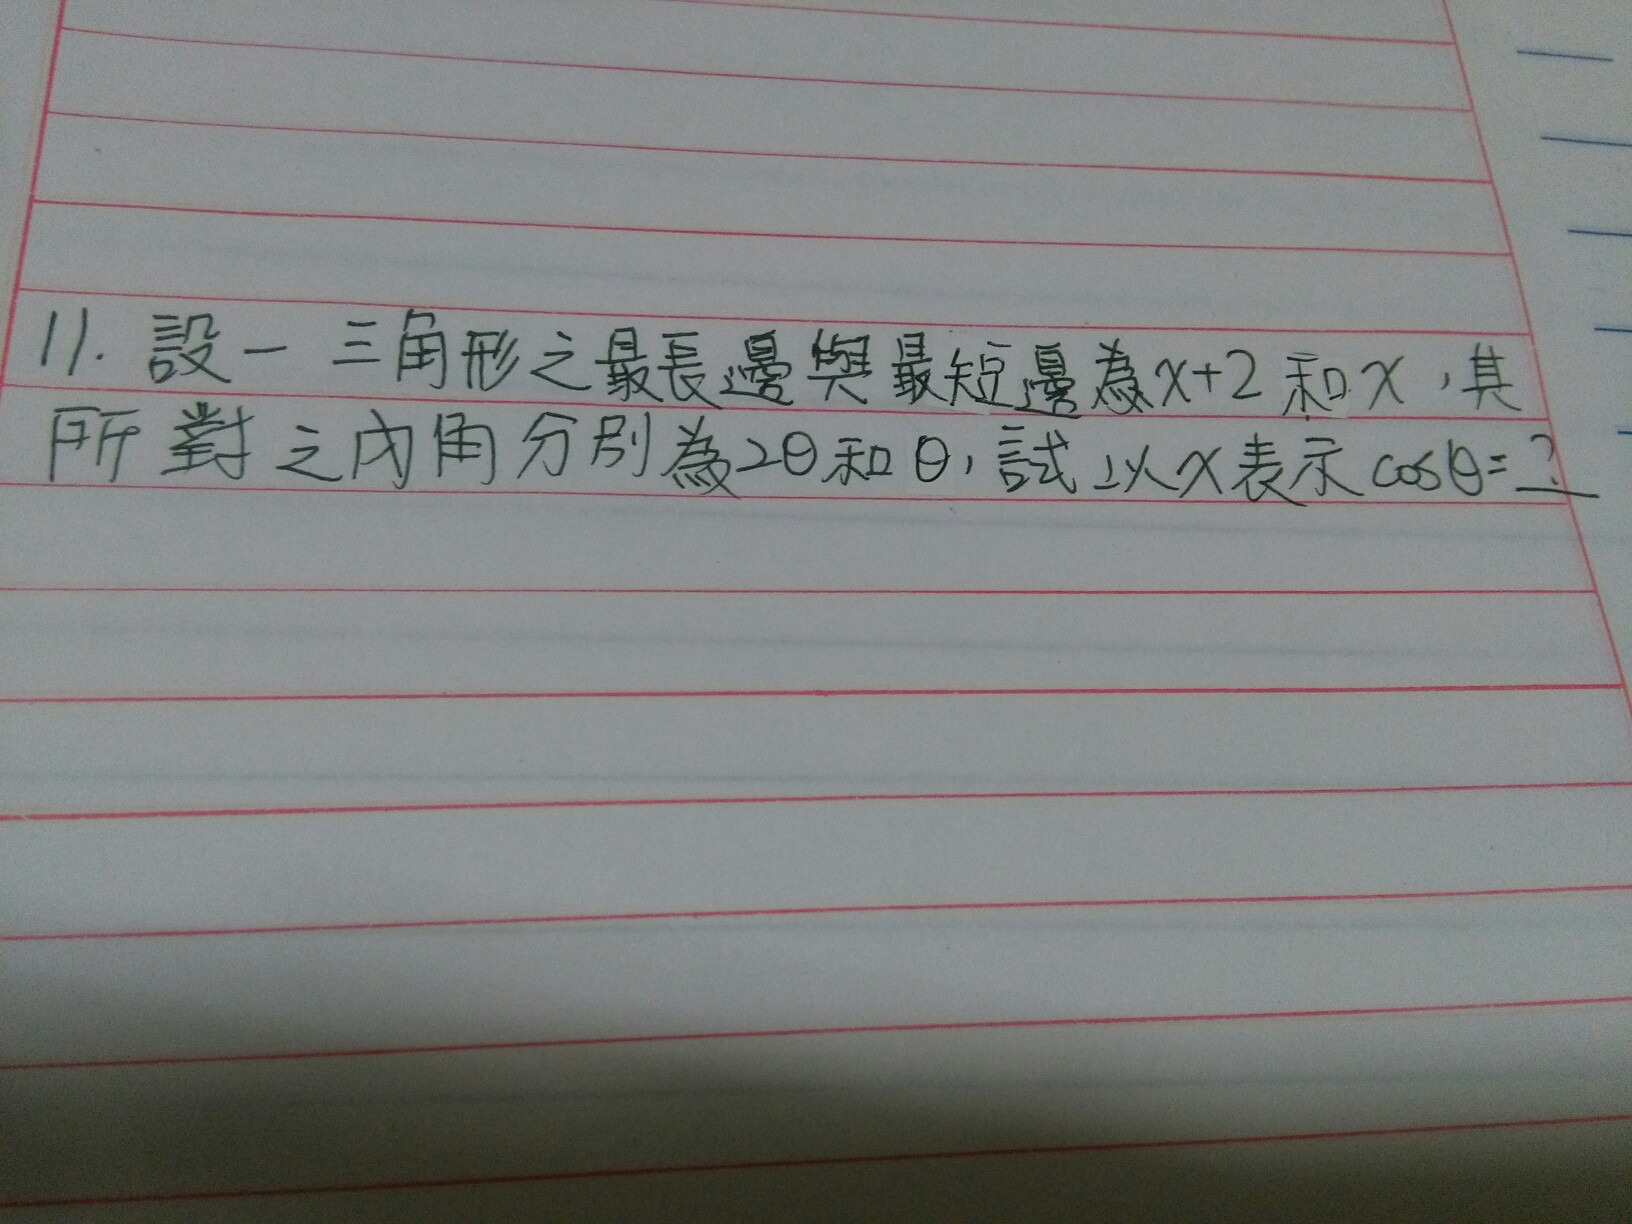 11. 設一三角形之最長邊與最短邊為x+2和x,其
所對之內角分別為2θ和θ,試以x表示cosθ=?